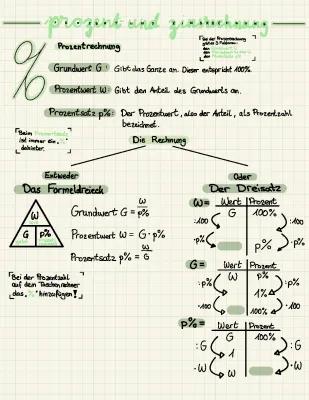 prozent und zinsrechnung
%
Prozentrechnung
Bei der Prozentrechnung
gibt es 3 Faktoren:
Grundwert G : Gibt das Ganze an. Dieser entspricht 100%.
Prozentwert W: Gibt den Anteil des Grundwerts an.
Prozentsatz p%: Der Prozentwert, also der Anteil, als Prozentzahl
bezeichnet.
Beim Prozentsatz
ist immer ein %
dahinter.
Die Rechnung
Entweder
Das Formeldreieck
W
G p%
Grundwert G = W/p%
Prozentwert W = G · p%
Prozentsatz p% = W/G
Bei der Prozentzahl
auf dem Taschenrechner
das „%" hinzufügen!
Oder
Der Dreisatz
W=
Wert Prozent
G 100%
:100 :100
·p% ·p%
p%
G=
Wert Prozent
W p%
:p% :p%
1%
·100 ·100
100%
p%=
Wert Prozent
G 100%
:G :G
1
·W ·W
W